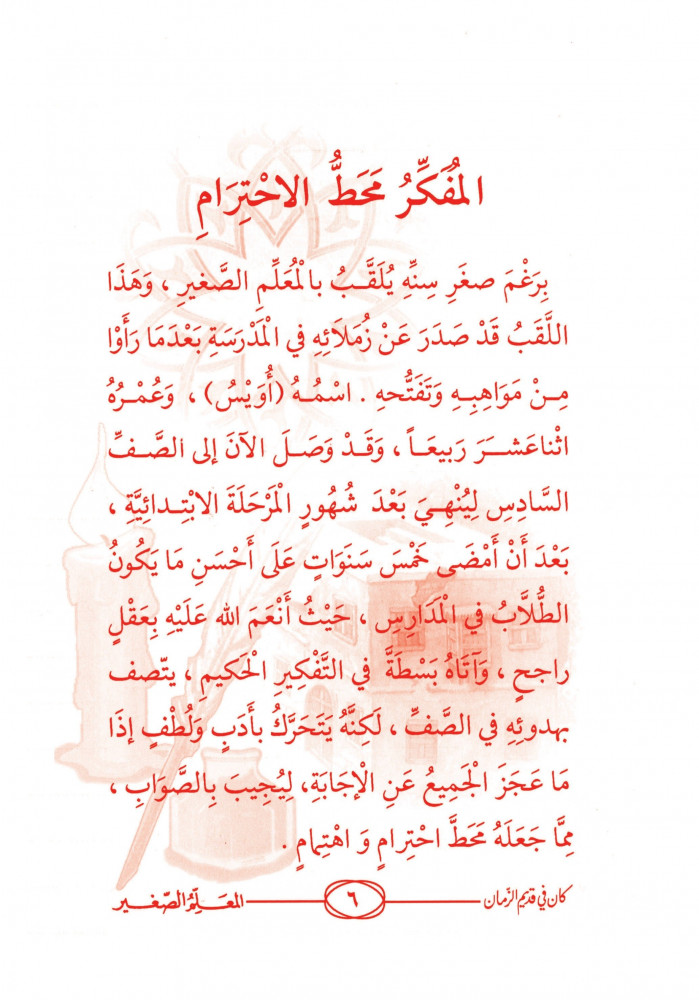 المُفَكِّرُ مَحَطُّ الاحْتِرَامِ
بِرَغْمَ صغَرِ سِنِّهِ يُلَقَّبُ بالْمُعَلِّمِ الصَّغيرِ ، وَهَذَا
اللَّقَبُ قَدْ صَدَرَ عَنْ زُمَلَائِهِ في الْمَدْرَسَةِ بَعْدَمَا رَأَوْا
مِنْ مَوَاهِبِهِ وَتَفَتُّحهِ . اسْمُهُ (أُوَيْسُ) ، وَعُمْرُهُ
اثْناعَشَرَ رَبيعَاً ، وَقَدْ وَصَلَ الآنَ إلى الصَّفِّ
السَّادِسِ لِيُنْهِيَ بَعْدَ شُهُورٍ الْمَرْحَلَةَ الابْتِدائِيَّةِ ،
بَعْدَ أَنْ أَمْضَى خَمْسَ سَنَوَاتٍ عَلَى أَحْسَنِ مَا يَكُونُ
الطُّلَّابُ في الْمَدَارِسِ ، حَيْثُ أَنْعَمَ الله عَلَيْهِ بِعَقْلٍ
راجحٍ ، وَآتَاهُ بَسْطَةً في التَّفْكِيرِ الْحَكيمِ ، يتّصف
بهدوئِهِ في الصَّفِّ ، لَكِنَّهُ يَتَحَرَّكُ بأَدَبٍ وَلُطْفٍ إذَا
مَا عَجَزَ الْجَمِيعُ عَنِ الْإجَابَةِ، لِيُجِيبَ بِالصَّوَابِ ،
مِمَّا جَعَلَهُ مَحَطَّ احْتِرامٍ وَ اهْتِمامٍ .
كان في قديم الزّمان ٦ المعَلِّمُ الصّغير